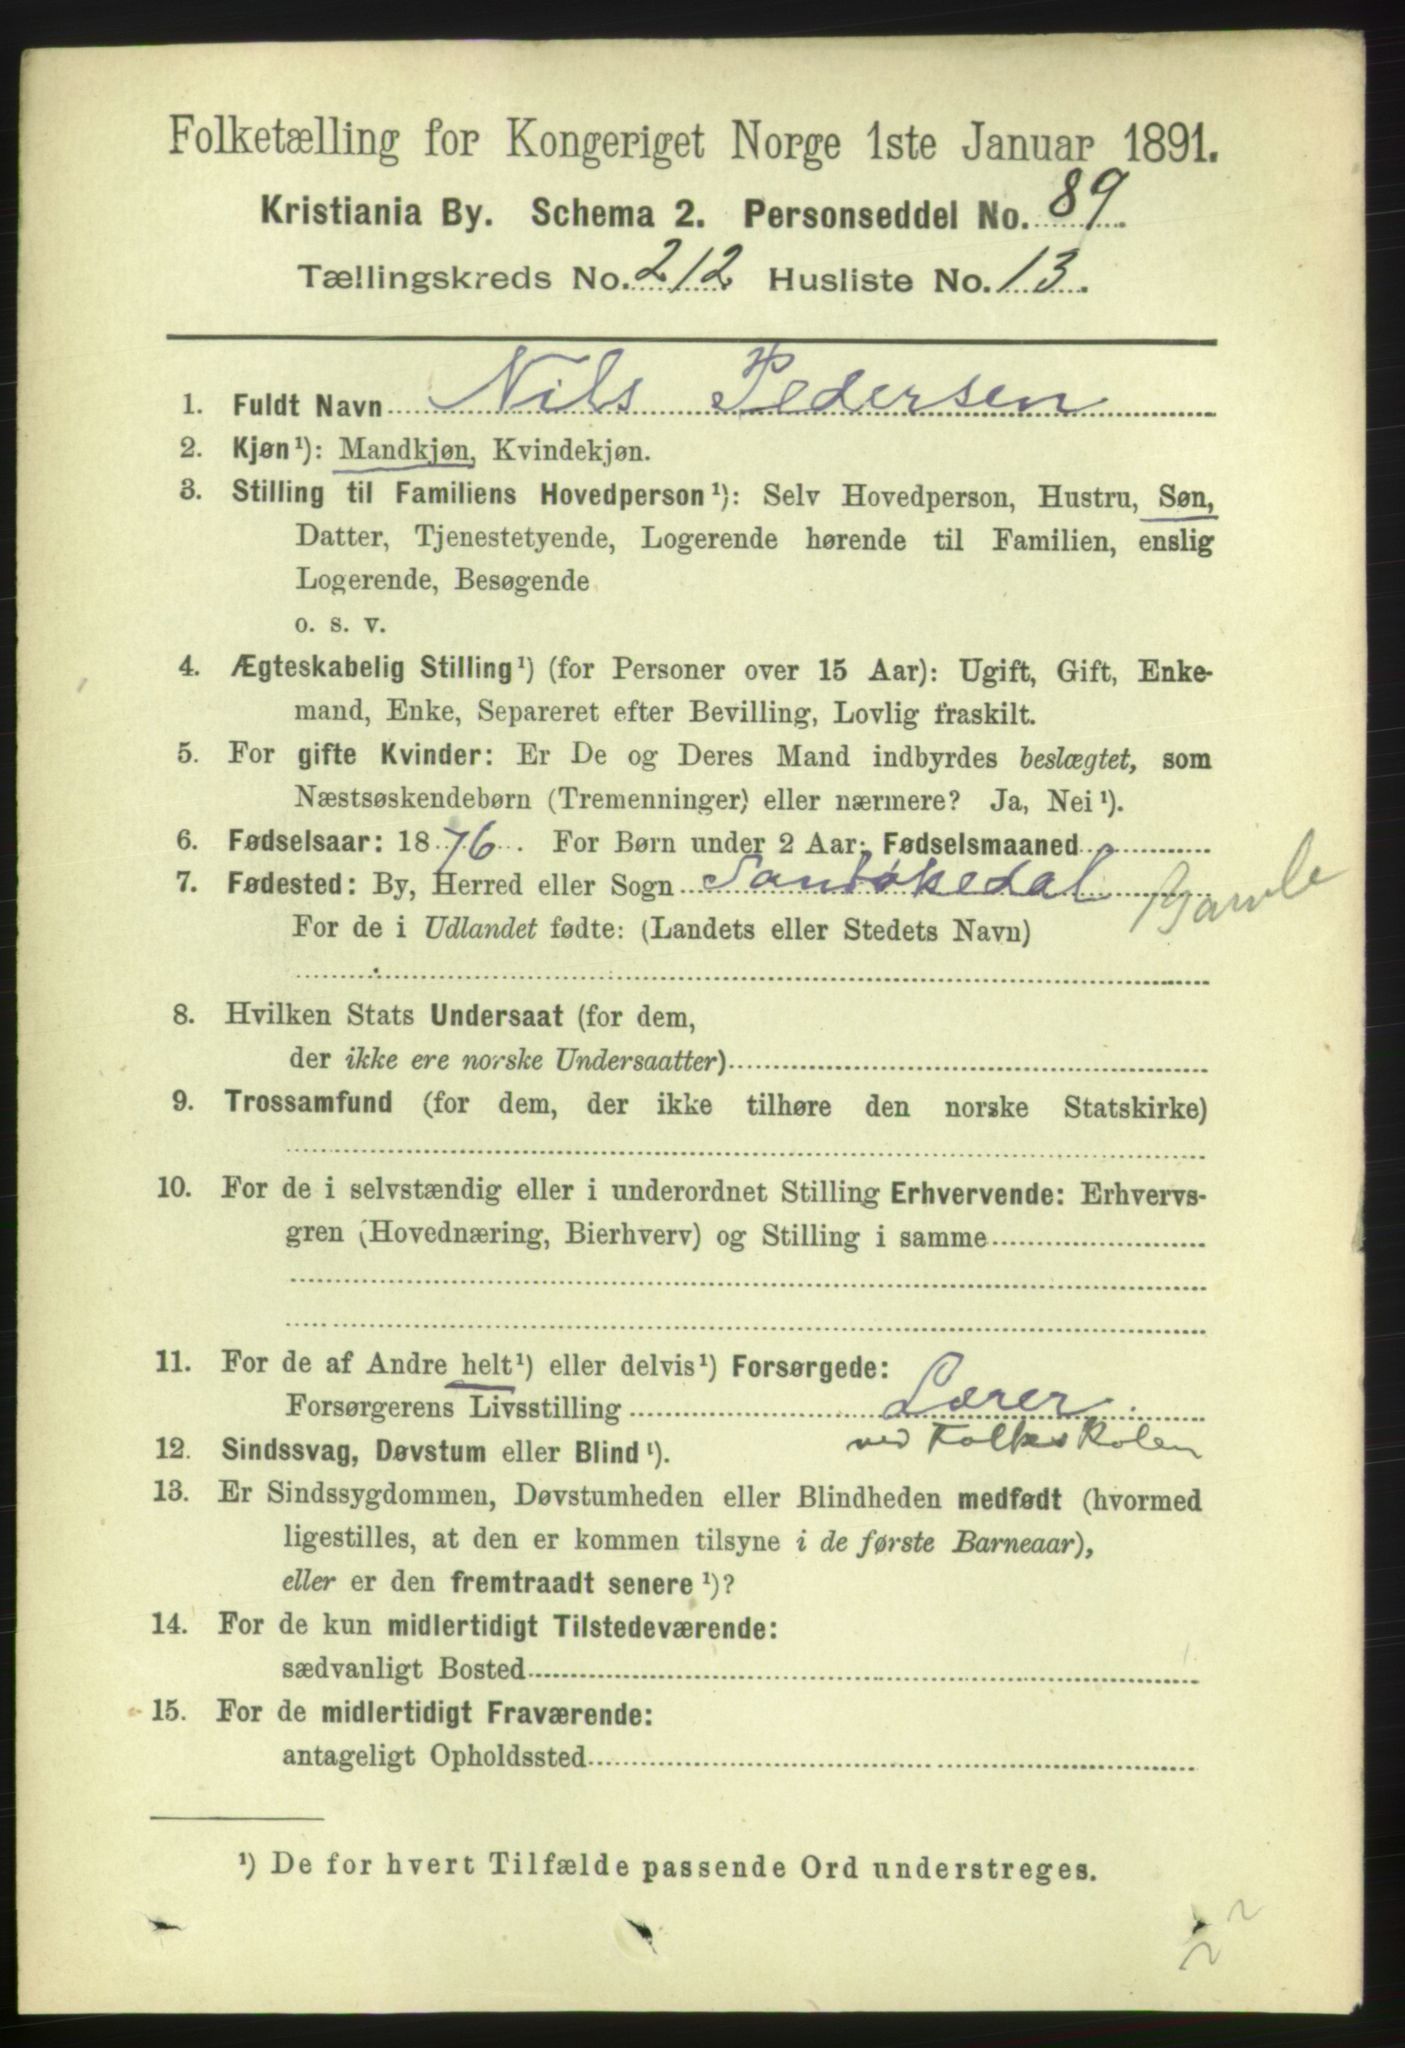 Folketælling for Kongeriget Norge 1ste Januar 1891.
Kristiania By. Schema 2. Personseddel No. 89.
Tællingskreds No. 212 Husliste No. 13.
1. Fuldt Navn Nils Pedersen
2. Kjøn¹): Mandkjøn, Kvindekjøn.
3. Stilling til Familiens Hovedperson¹): Selv Hovedperson, Hustru, Søn,
Datter, Tjenestetyende, Logerende hørende til Familien, enslig
Logerende, Besøgende
o. s. v.
4. Ægteskabelig Stilling¹) (for Personer over 15 Aar): Ugift, Gift, Enke-
mand, Enke, Separeret efter Bevilling, Lovlig fraskilt.
5. For gifte Kvinder: Er De og Deres Mand indbyrdes beslægtet, som
Næstsøskendebørn (Tremenninger) eller nærmere? Ja, Nei¹).
6. Fødselsaar: 1876. For Børn under 2 Aar: Fødselsmaaned
7. Fødested: By, Herred eller Sogn Sandøkedal Bamle
For de i Udlandet fødte: (Landets eller Stedets Navn)
8. Hvilken Stats Undersaat (for dem,
der ikke ere norske Undersaatter)
9. Trossamfund (for dem, der ikke tilhøre den norske Statskirke)
10. For de i selvstændig eller i underordnet Stilling Erhvervende: Erhvervs-
gren (Hovednæring, Bierhverv) og Stilling i samme
11. For de af Andre helt¹) eller delvis¹) Forsørgede:
Forsørgerens Livsstilling Lærer
ved Folkeskolen
12. Sindssvag, Døvstum eller Blind¹).
13. Er Sindssygdommen, Døvstumheden eller Blindheden medfødt (hvormed
ligestilles, at den er kommen tilsyne i de første Barneaar),
eller er den fremtraadt senere¹)?
14. For de kun midlertidigt Tilstedeværende:
sædvanligt Bosted
15. For de midlertidigt Fraværende:
antageligt Opholdssted
¹) De for hvert Tilfælde passende Ord understreges.
2 2